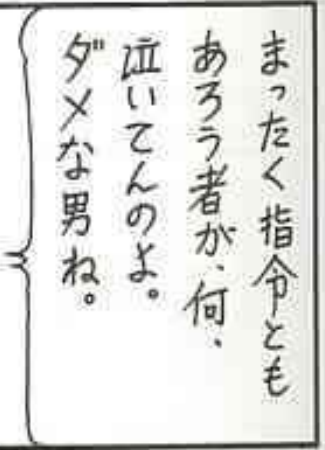 まったく指令とも
あろう者が、何、
泣いてんのよ。
ダメな男ね。